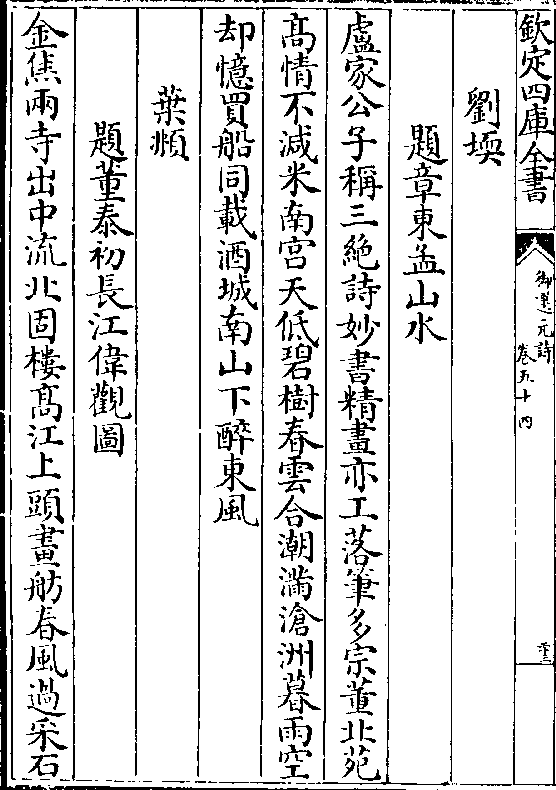 欽定四庫全書
御選元詩
卷五十四
劉堧
題章東孟山水
盧家公子稱三絶詩妙書精畫亦工落筆多宗董北苑
髙情不減米南宫天低碧樹春雲合潮滿滄洲暮雨空
却憶買船同載酒城南山下醉東風
葉顒
題董泰初長江偉觀圖
金焦兩寺出中流北固樓髙江上頭畫舫春風過采石